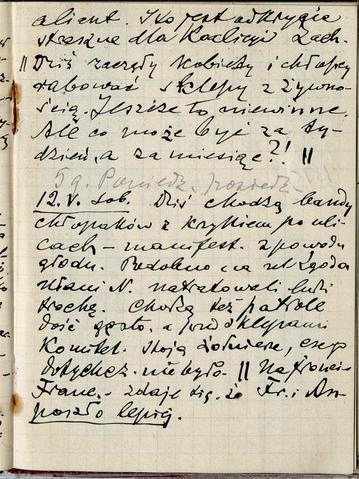 alient. I to jest odkrycie
straszne dla Koalicji Zach.
|| Dziś zaczęły kobiety i chłopcy
rabować sklepy z żywno-
ścią. Jeszcze to niewinne.
Ale co może być za ty-
dzień, a za miesiąc?! ||
12. V. Sob. Dziś chodzą bandy
chłopaków z krzykiem po uli-
cach – manifest. z powodu
głodu. Podobno na ul. Zgoda
ułani N. natratowali ludzi
trochę. Chodzą też patrole
dość gęsto, a przed sklepami
Komitet. stoją żołnierze, czego
dotychcz. nie było. || Na froncie
Franc. – zdaje się, że Fr. i An.
poszło lepiej.